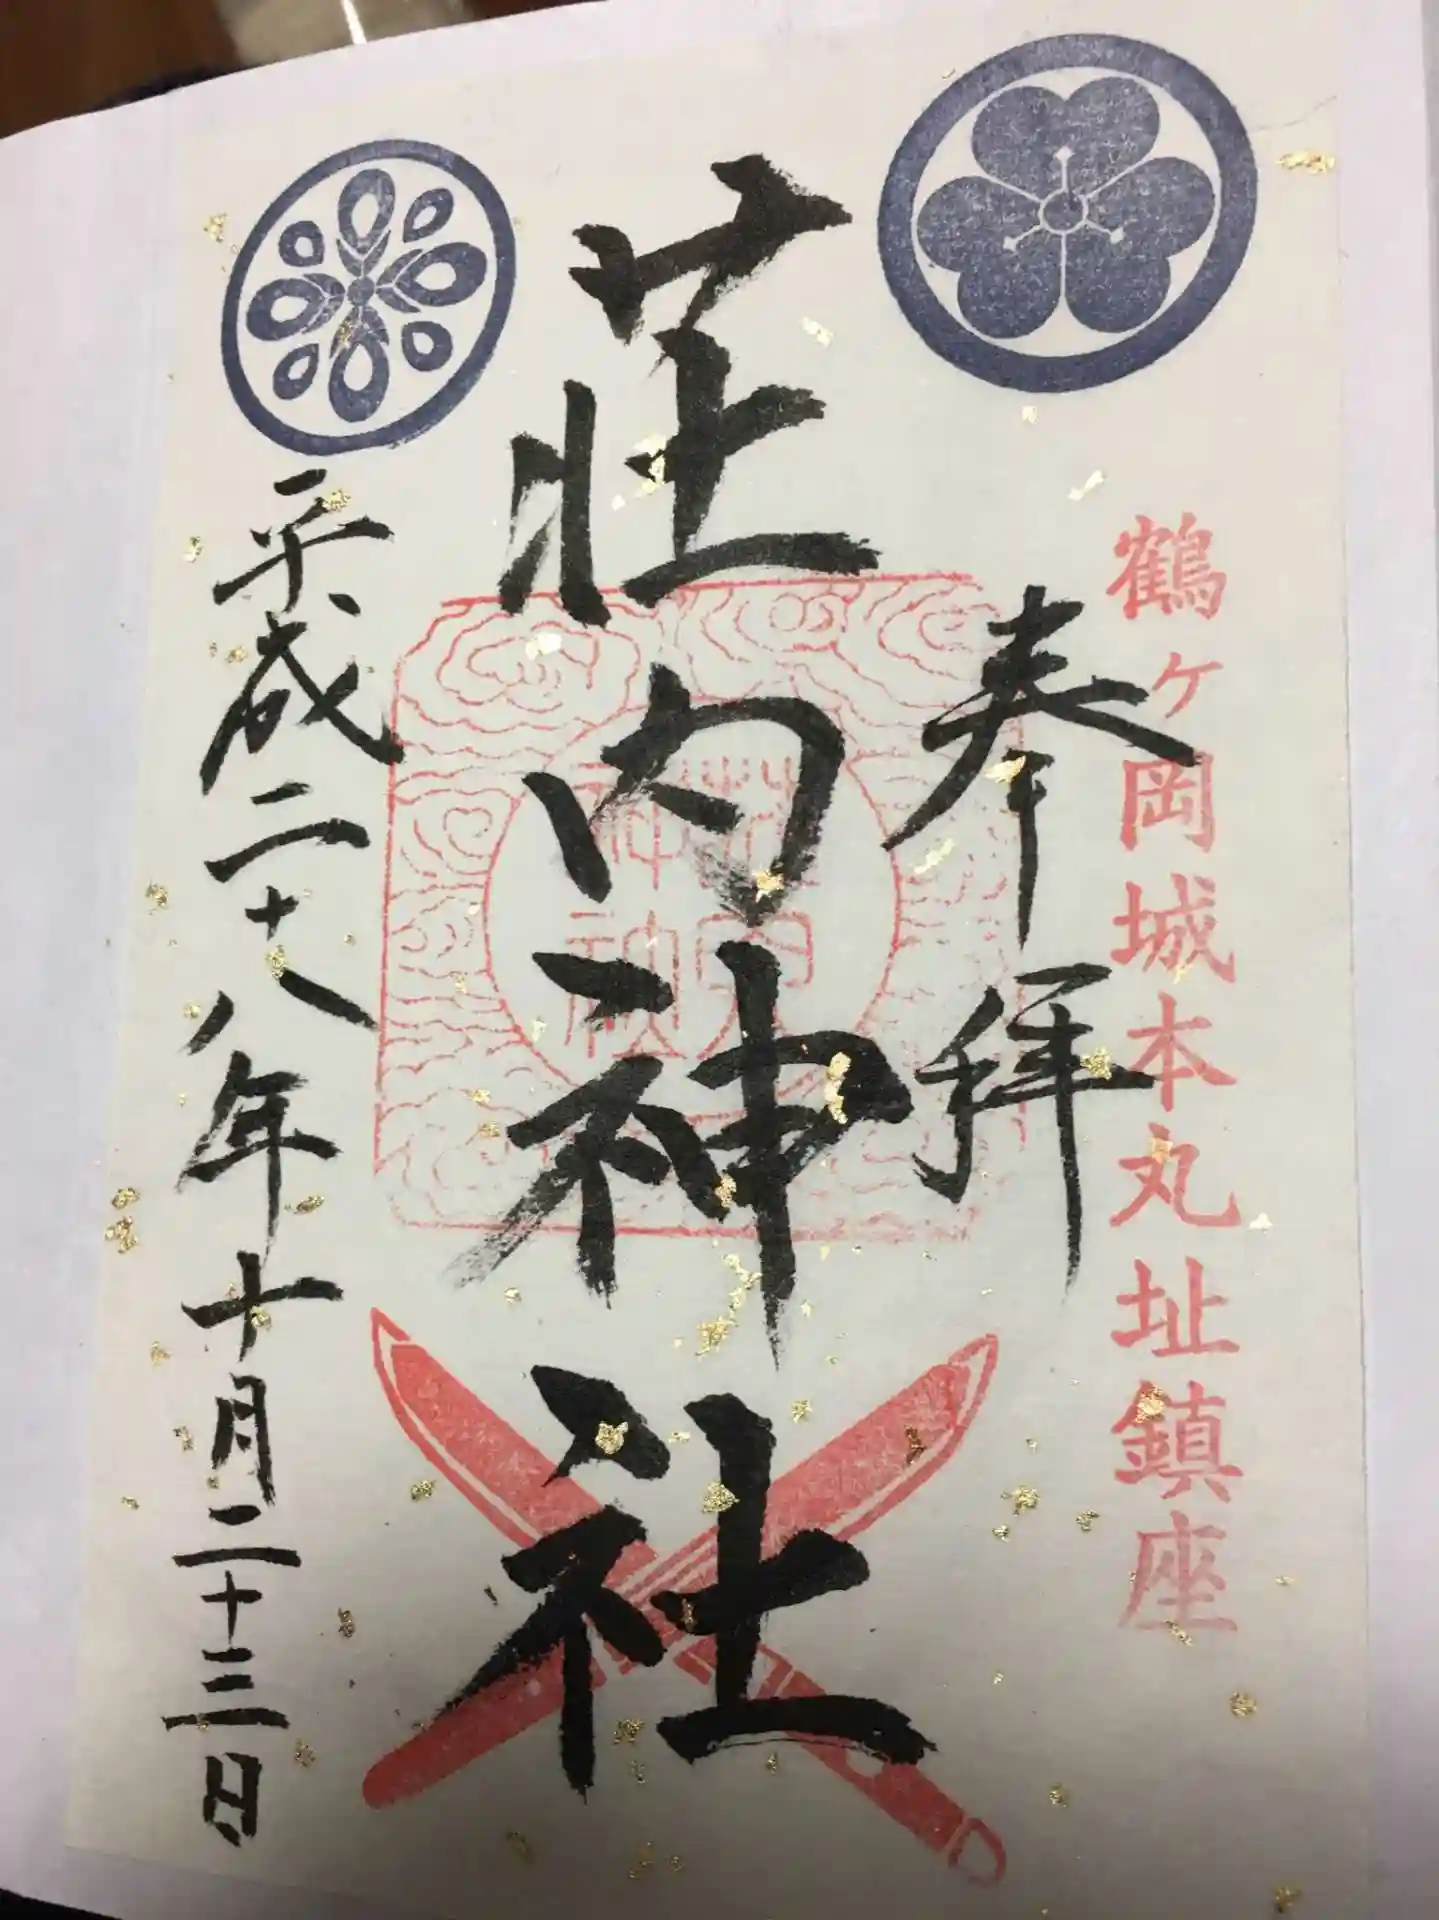 鶴ヶ岡城本丸址鎮座
奉拝
荘内神社
荘内
神社
平成二十八年十月二十三日